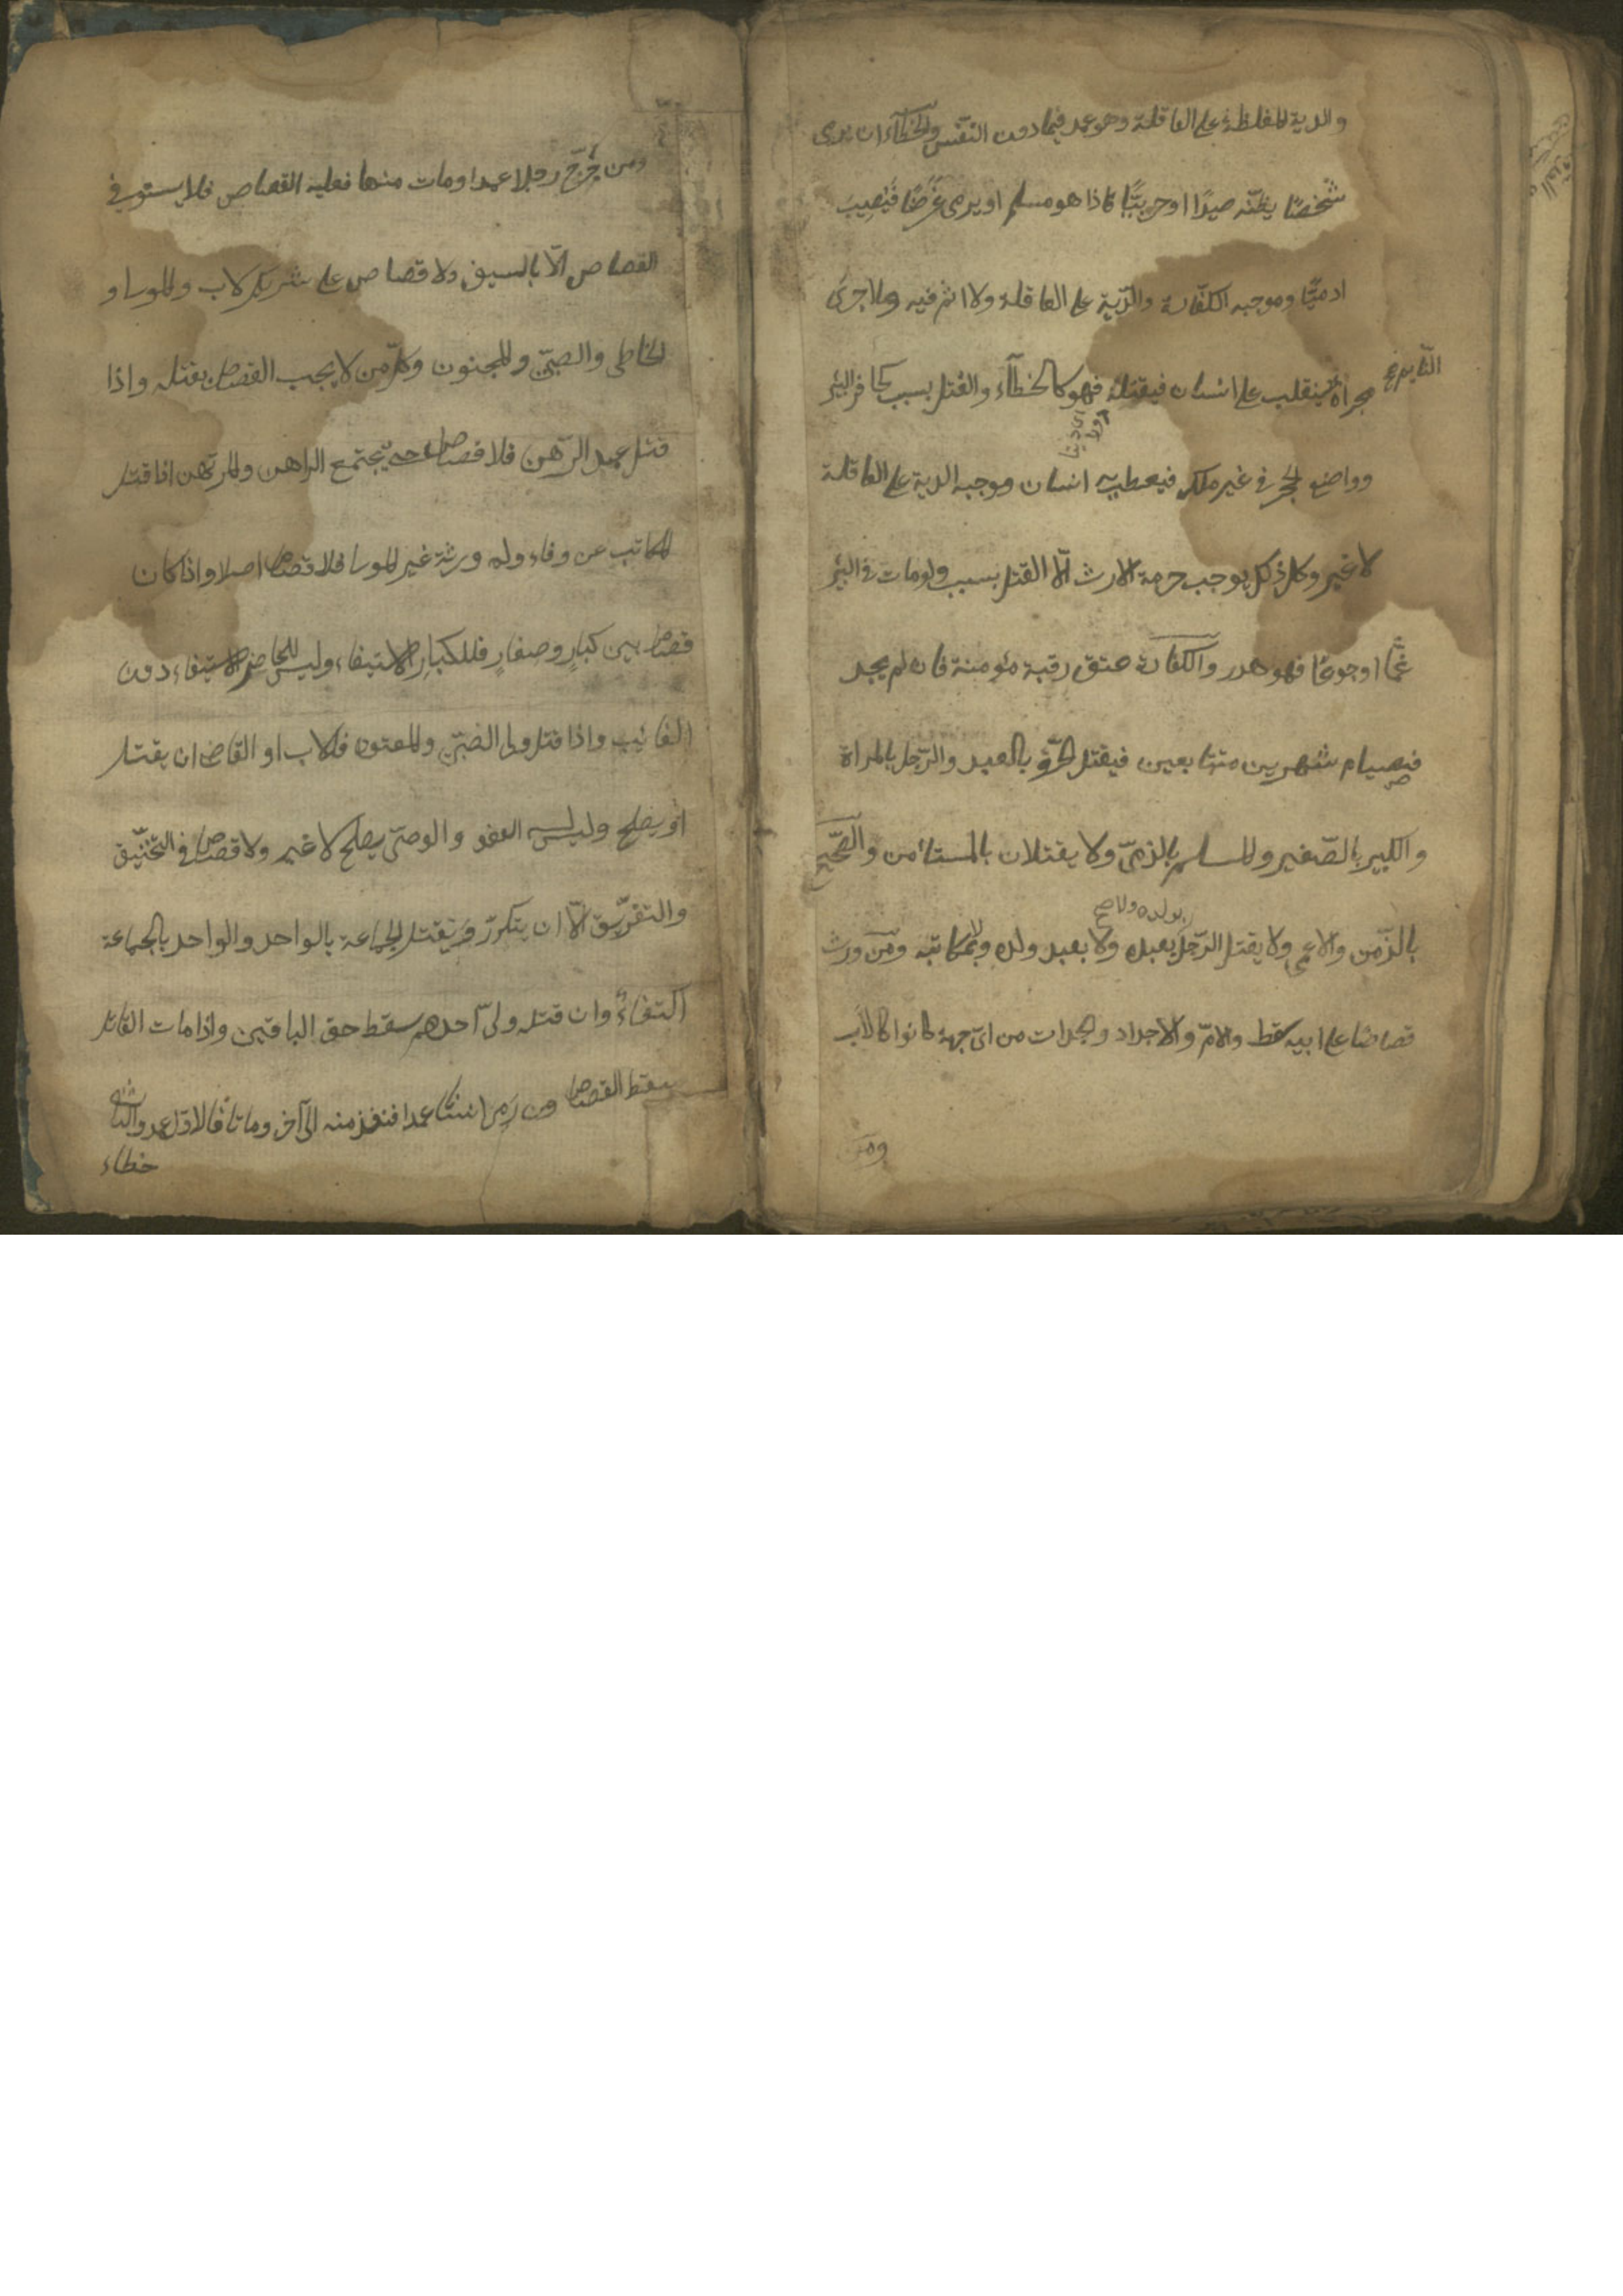 والدية المغلظة على العاقلة وهو عمد فيما دون النفس والخطآء ان يرمى
شخصًا يظنّه صيدًا او حربيًّا فاذا هو مسلم او يرمى غرضًا فيصيب
ادميًّا وموجبه الكفّارة والدّية على العاقلة ولا اثم فيه وما اجرى
مجراه ينقلب على انسان فيقتله فهو كالخطآء والقتل بسبب كحافر البئر
النّايم
وواضع الحجر فى غير ملكه فيعطب به انسان وموجبه الدية على العاقلة
لا غير وكل ذلك يوجب حرمة الارث الّا القتل بسبب ولو مات فى البئر
غمًّا او جوعًا فهو هدر والكفارة عتق رقبة مؤمنة فان لم يجد
فصيام شهرين متتابعين فيقتل الحرّ بالعبد والرّجل بالمراة
والكبير بالصّغير والمسلم بالذمّى ولا يقتلان بالمستأمن والصّحيح
بولده ولا صح
بالزّمن والاعمى ولا يقتل الرّجل بعبده ولا بعبد ولده ولا بمكاتبه ومن ورث
قصاصًا على ابيه سقط والامّ والاجداد والجدات من اىّ جهة كانوا كالاب
ومن
ومن جرح رجلا عمدا ومات منها فعليه القصاص فلا يستوفى
القصاص الّا بالسيف ولا قصاص على شريك الاب والمولى او
الخاطى والصبىّ والمجنون وكلّ من لا يجب القصاص بقتله واذا
قتل عبد الرّهن فلا قصاص حتى يجتمع الراهن والمرتهن اذا قتل
المكاتب عن وفاء وله ورثة غير المولى فلا قصاص اصلا واذا كان
قصاص بين كبارٍ وصغارٍ فللكبار الاستيفاء وليس للحاضر الاستيفاء دون
الغائب واذا قتل ولى الصبىّ والمعتوه فللاب او القاضى ان يقتل
او يصلح وليس له العفو والوصىّ يصلح لا غير ولا قصاص فى التخنيق
والتغريق الّا ان يتكرّر ويقتل الجماعة بالواحد والواحد بالجماعة
اكتفاءً وان قتله ولىّ احدهم سقط حق الباقين واذا مات القاتل
سقط القصاص ومن رمى انسانًا عمدا فنفذ منه الى آخر وماتا فالاوّل عمد والثانى
خطاء